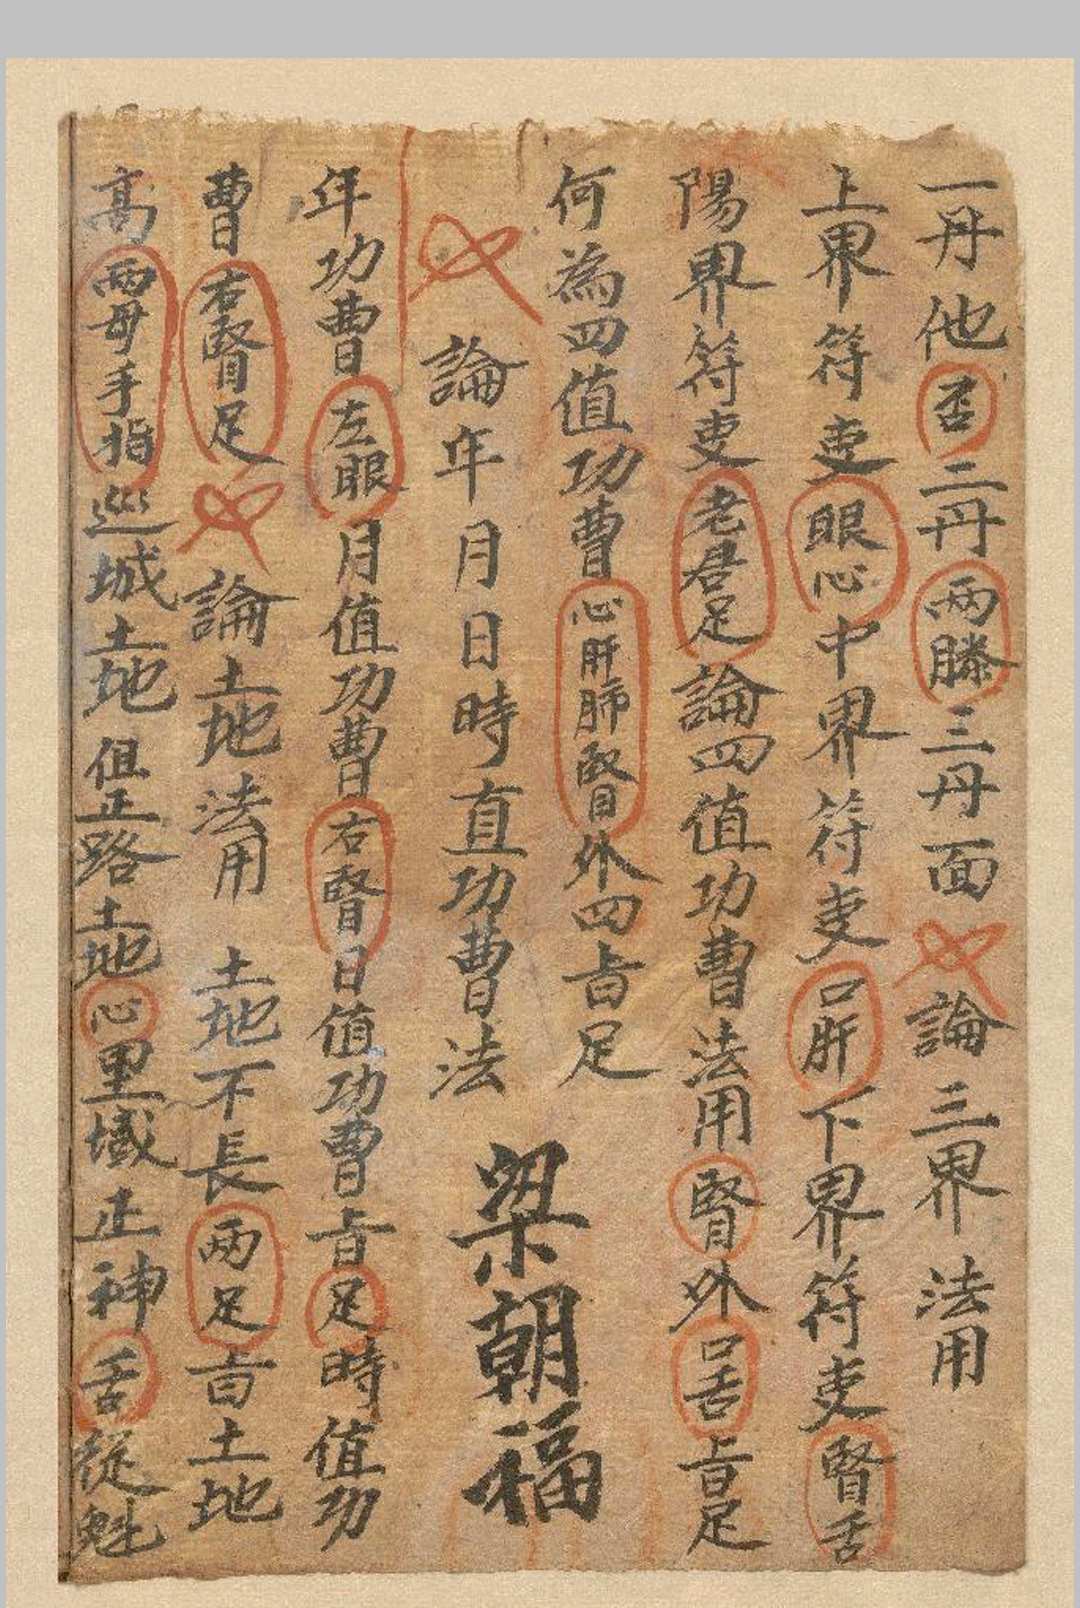 一丹他否二丹両膝三丹面論三界法用
上界符吏眼心中界符吏口肝下界符吏腎舌
陽界符吏老君足論四值功曹法用腎外口舌㫖足
何為四值功曹心肝肺腎外四㫖足
論年月日時直功曹法
梁朝福
年功曹左眼月值功曹右腎日值功曹㫖足時值功
曹右腎足論土地法用 土地不長両足㫖土地
高両母手指巡城土地伹正路土地心里域正神舌從魁